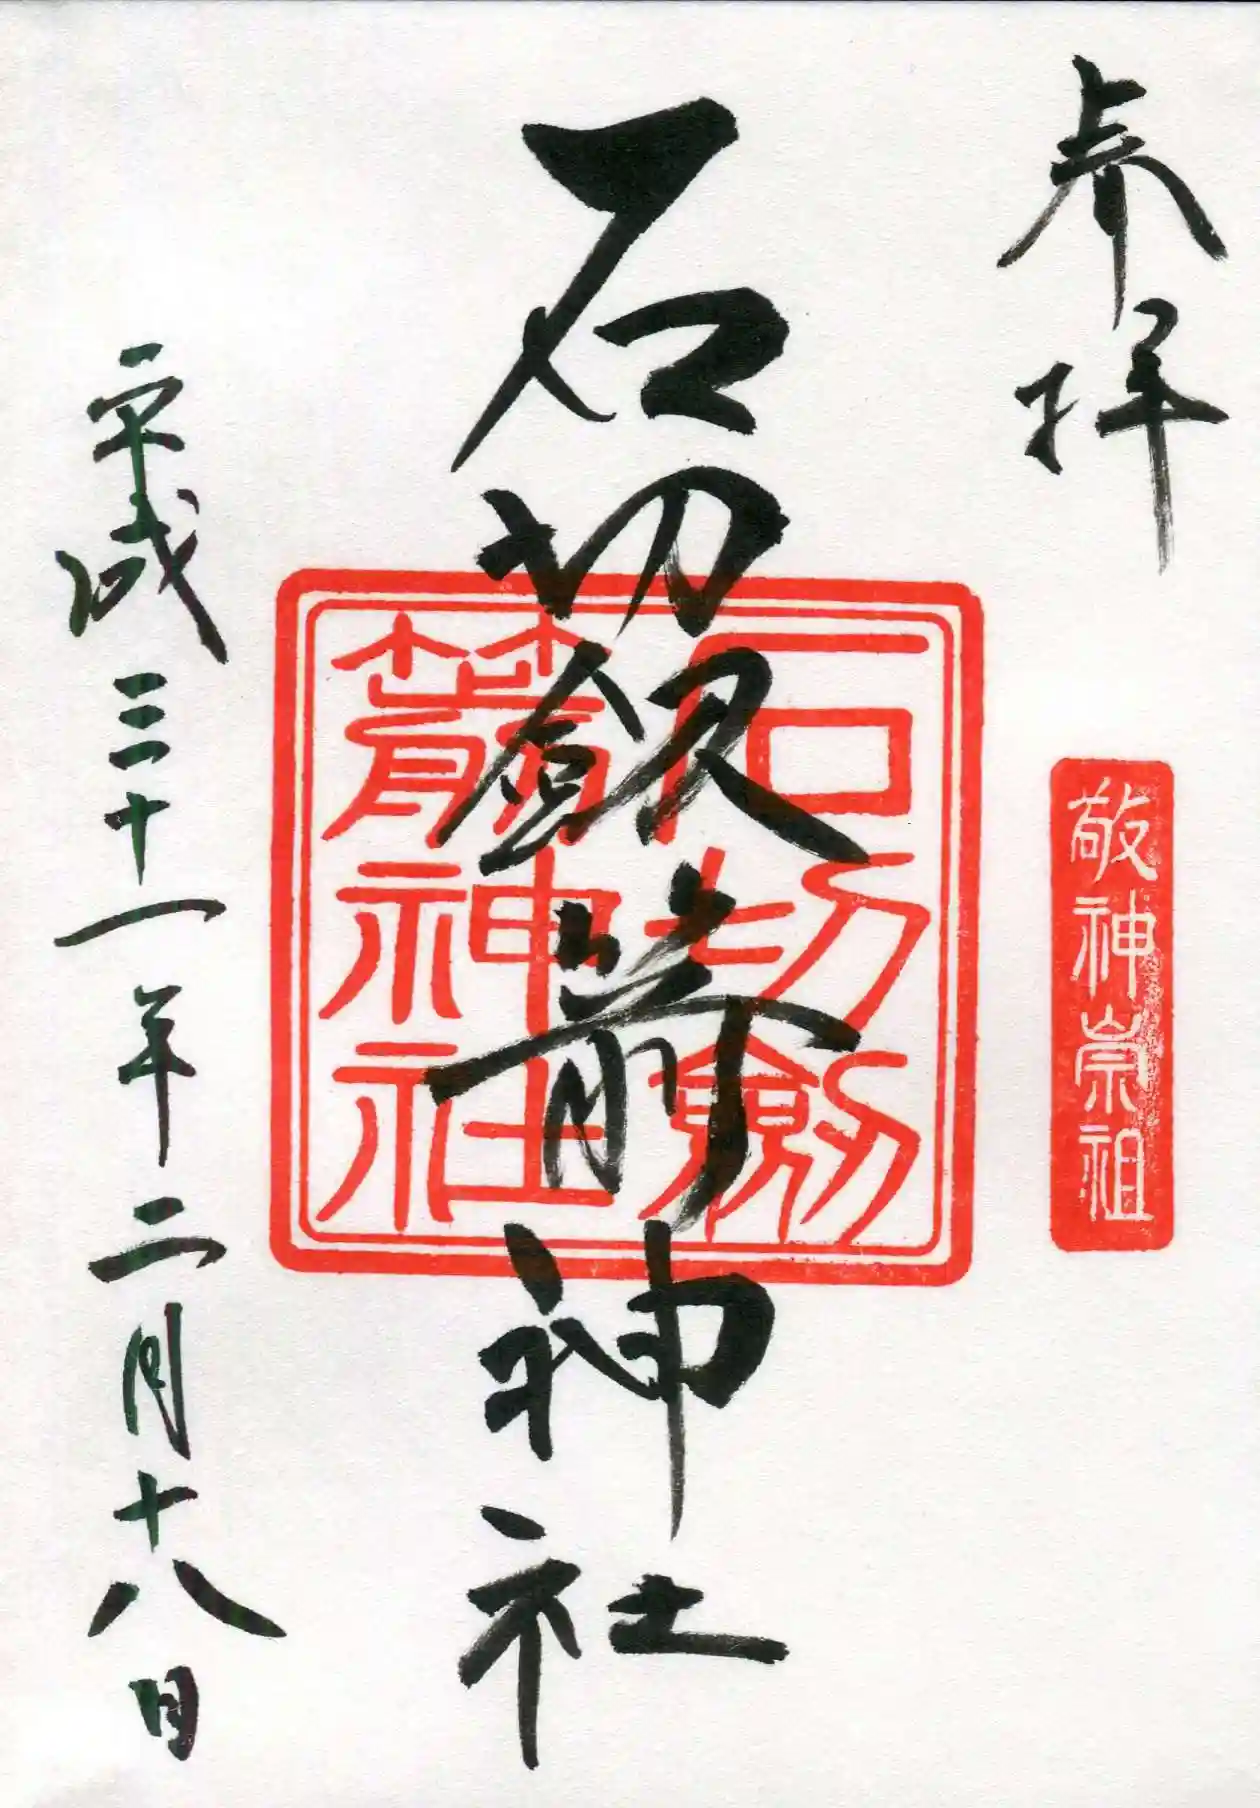 奉拝
敬神崇祖
石切劔箭神社
石切劍
箭神社
平成三十一年二月十八日